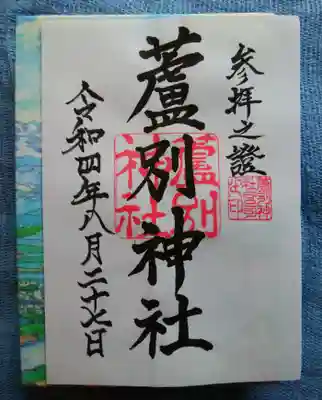 参拝之證
蘆別神社
蘆別
神社
令和四年八月二十七日